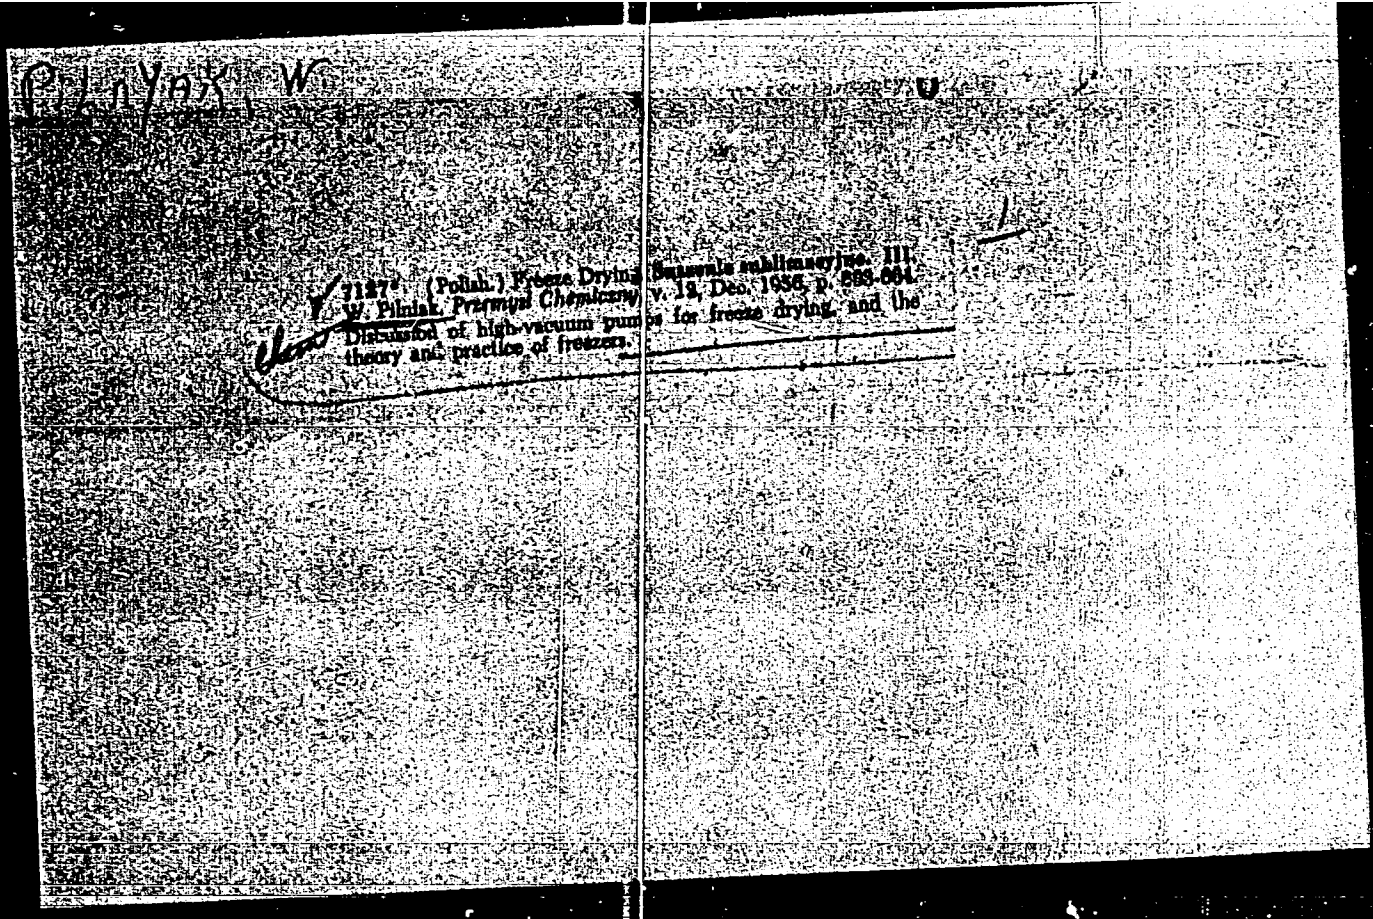 PILNYAK, W
7127* (Polish.) Freeze Drying. Suszenie sublimacyjne. III.
W. Pilniak. Przemysl Chemiczny, v. 12, Dec. 1956, p.
Discussion of high-vacuum pumps for freeze drying, and the
theory and practice of freezers.
1